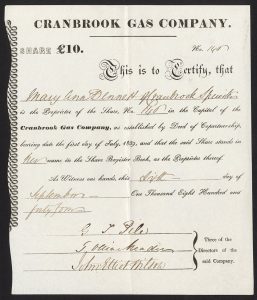 CRANBROOK GAS COMPANY.
SHARE £10. No. 146
This is to Certify, that
Mary Ann Dennett of Cranbrook Spinster
is the Proprietor of the Share, No. 146 in the Capital of the
Cranbrook Gas Company, as established by Deed of Copartnership,
bearing date the first day of July, 1837, and that the said Share stands in
her name in the Share Register Book, as the Proprietor thereof.
As Witness our hands, this day of
September One Thousand Eight Hundred and
forty
G. T.
Three of the
Directors of the
said Company.
John Elliott Wilson